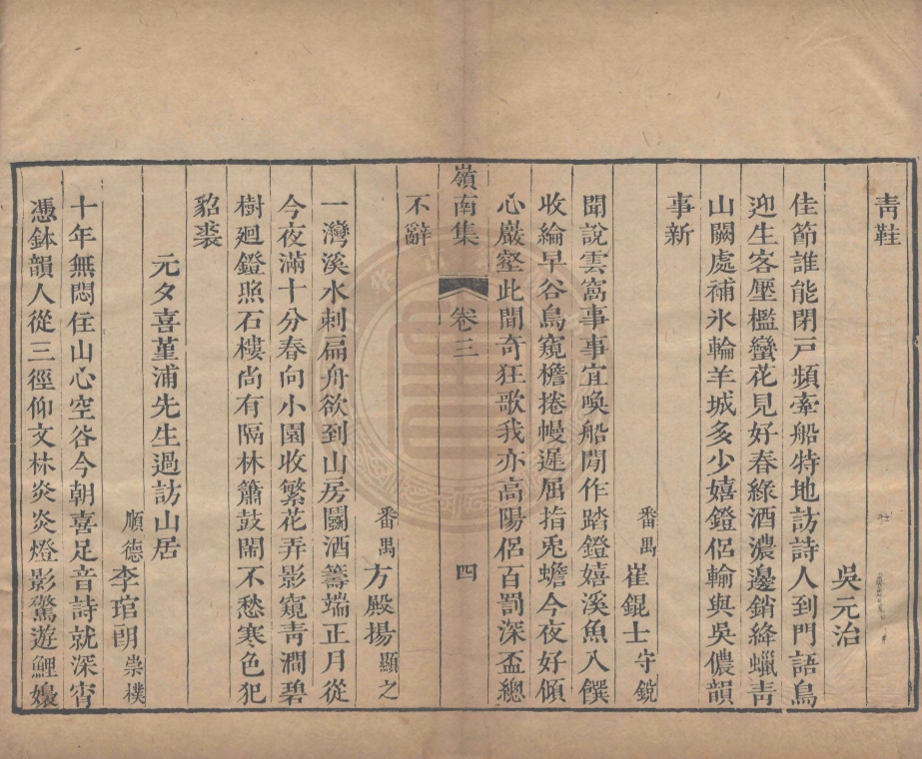 青鞋
吳元治
佳節誰能閉戸頻牽船特地訪詩人到門語鳥
迎生客壓檻蠻花見好春綠酒濃邊銷絳蠟青
山闕處補氷輪羊城多少嬉鐙侶輸與吳儂韻
事新
番禺崔錕士守銳
聞說雲窩事事宜喚船閒作踏鐙嬉溪魚入饌
收綸早谷鳥窺檐捲幔遲屈指兎蟾今夜好傾
心巖壑此間奇狂歌我亦高陽侶百罰深盃總
嶺南集 卷三 四
不辭
番禺方殿揚顯之
一灣溪水刺扁舟欲到山房鬭酒籌端正月從
今夜滿十分春向小園收繁花弄影窺青澗碧
樹廻鐙照石樓尚有隔林簫鼓鬧不愁寒色犯
貂裘
元夕喜堇浦先生過訪山居
順德李琯朗崇樸
十年無悶住山心空谷今朝喜足音詩就深宵
憑鉢韻人從三徑仰文林炎炎燈影驚遊鯉嬝